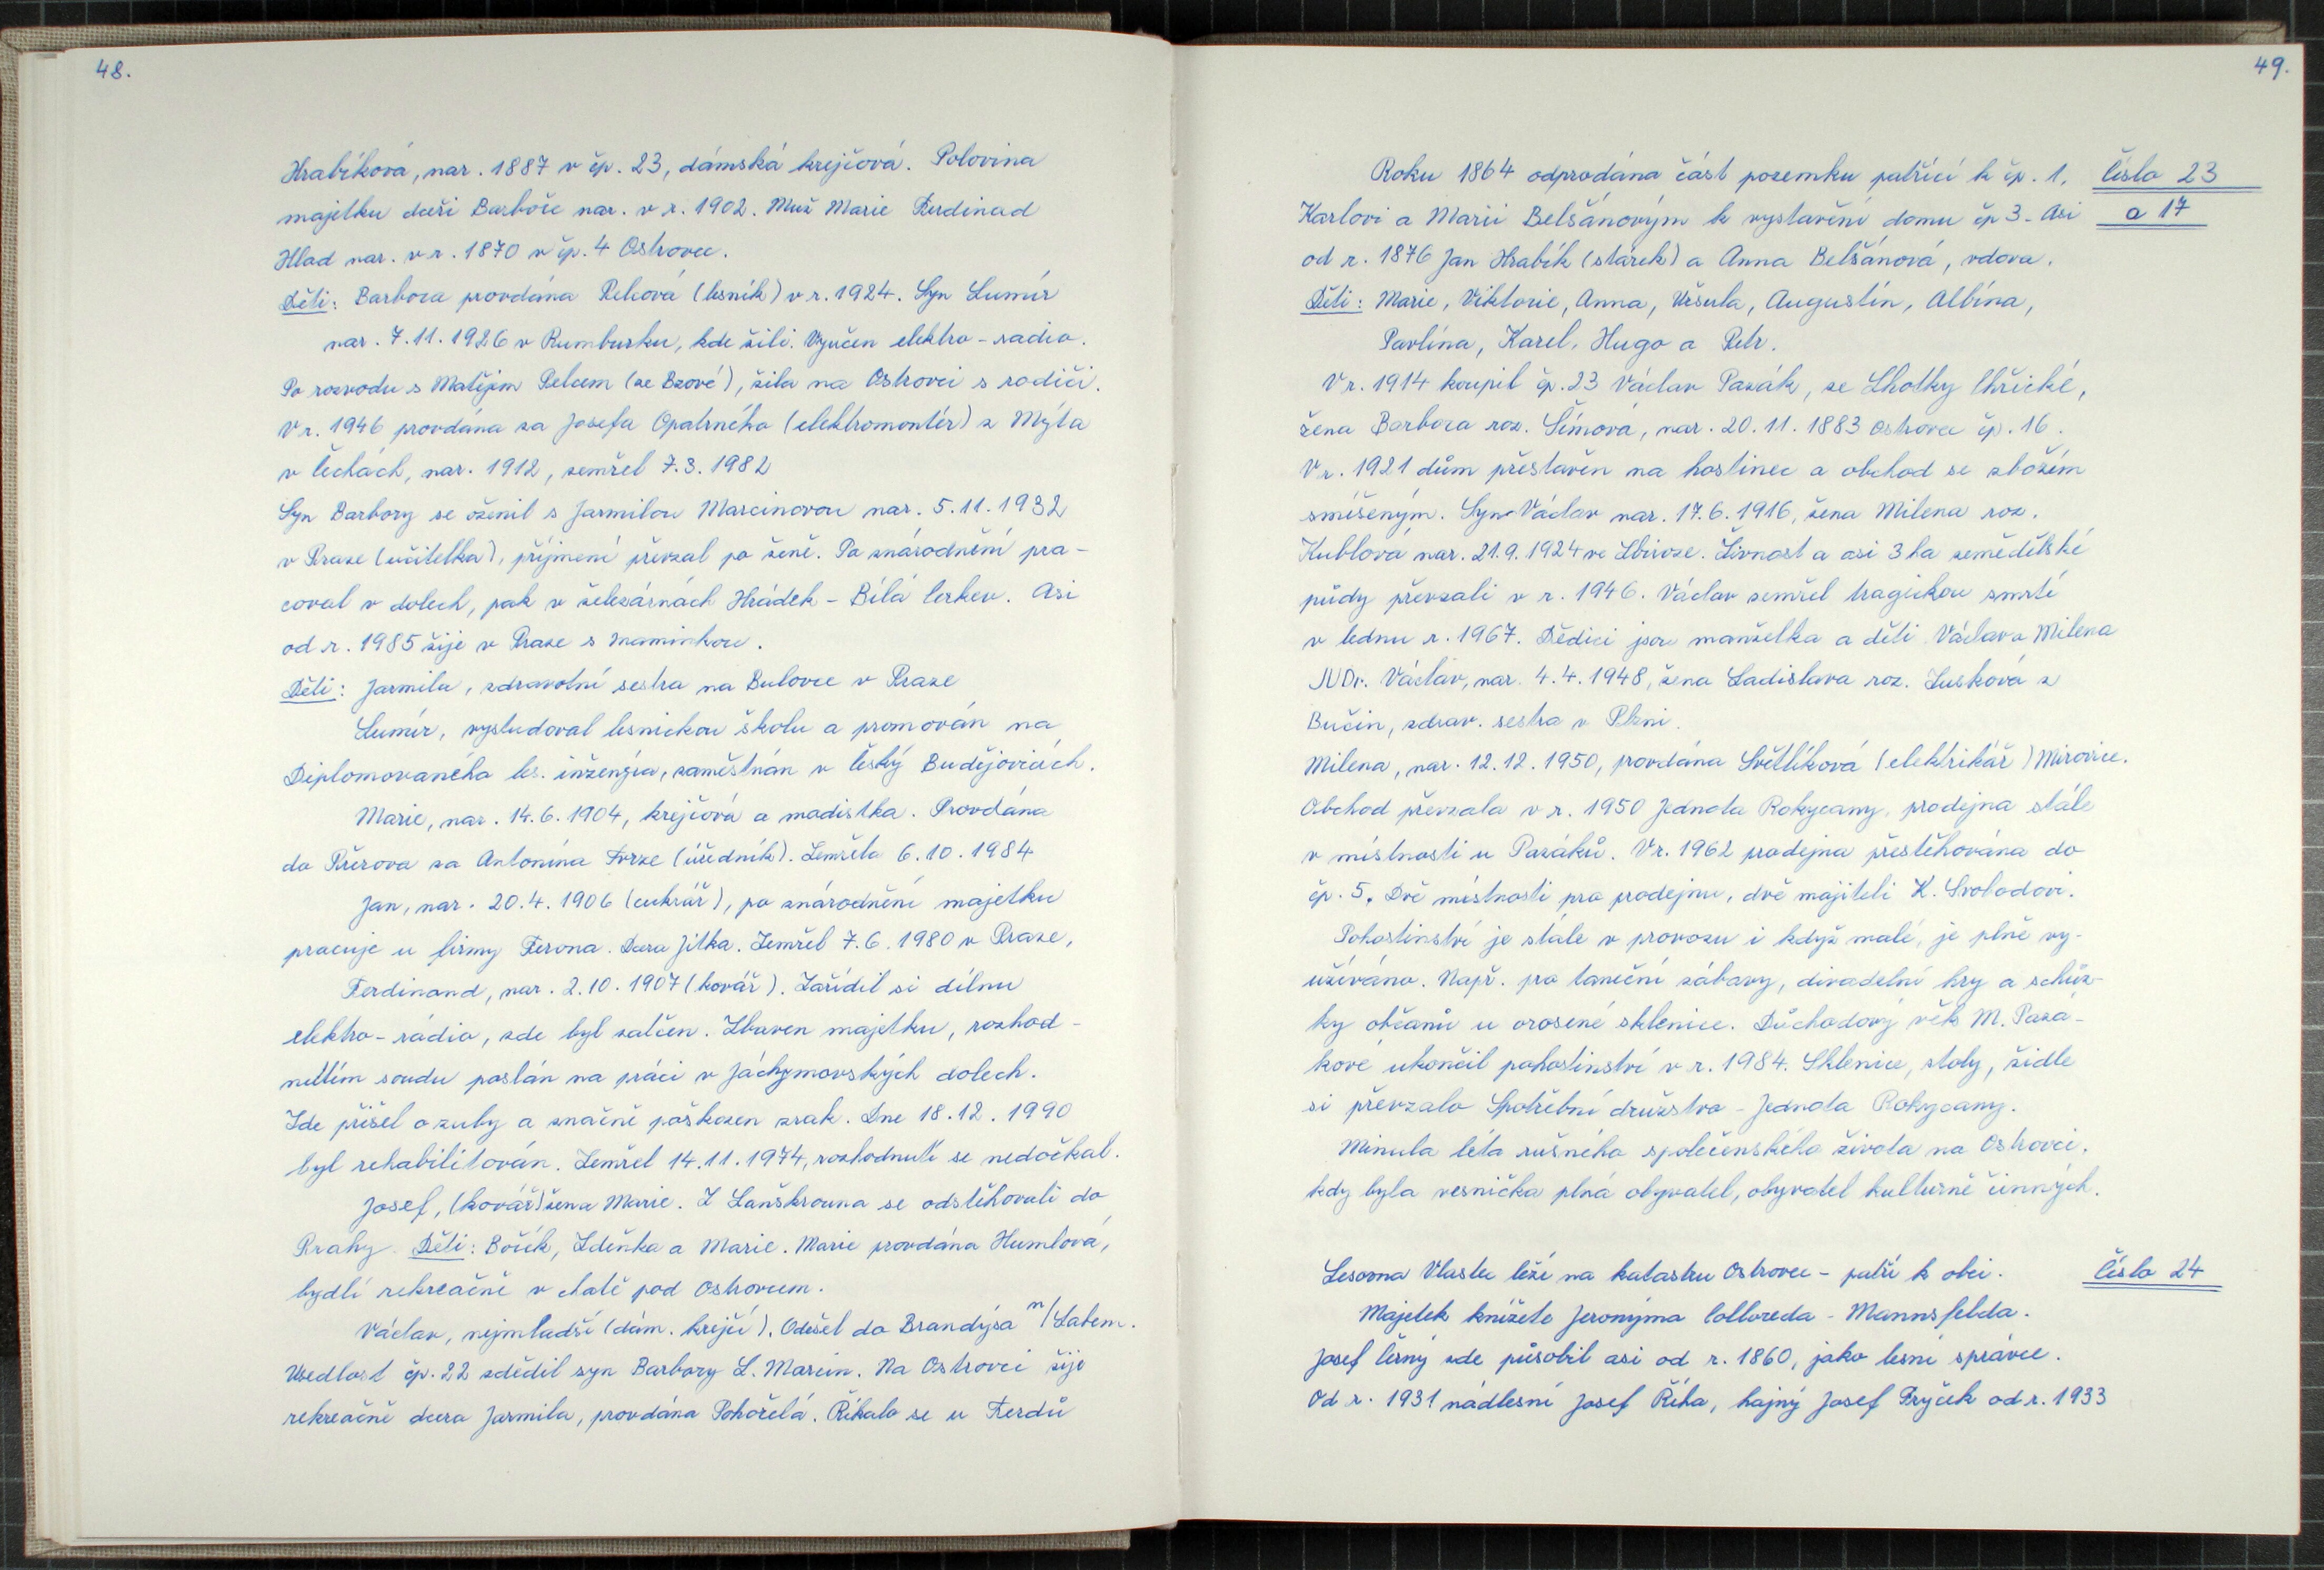 48.
Hrabíková, nar. 1887 v čp. 23, dámská krejčová. Polovina
majetku dceři Barboře nar. v r. 1902. Muž Marie Ferdinad
Hlad nar. v r. 1870 v čp. 4 Ostrovec.
Děti: Barbora provdána Pelcová (lesník) v r. 1924. Syn Lumír
nar. 7.11.1926 v Rumburku, kde žili. Vyučen elektro-radio.
Po rozvodu s Matějem Pelcem (ze Bzové), žila na Ostrovci s rodiči.
V r. 1946 provdána za Josefa Opatrného (elektromontér) z Mýta
v Čechách, nar. 1912, zemřel 7.3.1982
Syn Barbory se oženil s Jarmilou Marcinovou nar. 5.11.1932
v Praze (učitelka), příjmení převzal po ženě. Po znárodnění pra-
coval v dolech, pak v železárnách Hrádek - Bílá Cerkev. Asi
od r. 1985 žije v Praze s maminkou.
Děti: Jarmila, zdravotní sestra na Bulovce v Praze
Lumír, vystudoval lesnickou školu a promován na
Diplomovaného les. inženýra, zaměstnán v Český Budějovicích.
Marie, nar. 14.6.1904, krejčová a modistka. Provdána
do Přerova za Antonína Tvrze (úředník). Zemřela 6.10.1984
Jan, nar. 20.4.1906 (cukrář), po znárodnění majetku
pracuje u firmy Ferona. Dcera Jitka. Zemřel 7.6.1980 v Praze,
Ferdinand, nar. 2.10.1907 (kovář). Zařídil si dílnu
elektro-rádio, zde byl zatčen. Zbaven majetku, rozhod-
nutím soudu poslán na práci v Jáchymovských dolech.
Zde přišel o zuby a značně poškozen zrak. Dne 18.12.1990
byl rehabilitován. Zemřel 14.11.1974, rozhodnutí se nedočkal.
Josef, (kovář) žena Marie. Z Lanškrouna se odstěhovali do
Prahy. Děti: Bořík, Zdeňka a Marie. Marie provdána Humlová,
bydlí rekreačně v chatě pod Ostrovcem.
Václav, nejmladší (dám. krejčí). Odešel do Brandýsa n/Labem.
Usedlost čp. 22 zdědil syn Barbory L. Marcin. Na Ostrovci žije
rekreačně dcera Jarmila, provdána Pohořelá. Říkalo se u Ferdů
49.
Roku 1864 odprodána část pozemku patřící k čp. 1, Číslo 23
Karlovi a Marii Belšánovým k vystavění domu čp 3. Asi a 17
od r. 1876 Jan Hrabík (stárek) a Anna Belšánová, vdova.
Děti: Marie, Viktorie, Anna, Uršula, Augustin, Albína,
Pavlína, Karel, Hugo a Petr.
V r. 1914 koupil čp. 23 Václav Pazák, ze Lhotky Chřické,
žena Barbora roz. Šímová, nar. 20.11.1883 Ostrovec čp. 16.
V r. 1921 dům přestavěn na hostinec a obchod se zbožím
smíšeným. Syn Václav nar. 17.6.1916, žena Milena roz.
Kublová nar. 21.9.1924 ve Zbiroze. Živnost a asi 3 ha zemědělské
půdy převzali v r. 1946. Václav zemřel tragickou smrtí
v lednu r. 1967. Dědici jsou manželka a děti Václav a Milena
JUDr. Václav, nar. 4.4.1948, žena Ladislava roz. Lusková z
Bučin, zdrav. sestra v Plzni.
Milena, nar. 12.12.1950, provdána Světlíková (elektrikář) Mirovice.
Obchod převzala v r. 1950 Jednota Rokycany, prodejna stále
v místnosti u Pazáků. V r. 1962 prodejna přestěhována do
čp. 5. Dvě místnosti pro prodejnu, dvě majiteli K. Svobodovi.
Pohostinství je stále v provozu i když malé, je plně vy-
užíváno. Např. pro taneční zábavy, divadelní hry a schůz-
ky občanů u orosené sklenice. Důchodový věk M. Pazá-
kové ukončil pohostinství v r. 1984. Sklenice, stoly, židle
si převzalo Spotřební družstvo - Jednota Rokycany.
Minula léta rušného společenského života na Ostrovci.
kdy byla vesnička plná obyvatel, obyvatel kulturně činných.
Lesovna Vlastec leží na katastru Ostrovec - patří k obci. Číslo 24
Majetek knížete Jeronýma Colloreda - Mannsfelda.
Josef Černý zde působil asi od r. 1860, jako lesní správce.
Od r. 1931 nádlesní Josef Říha, hajný Josef Fryček od r. 1933